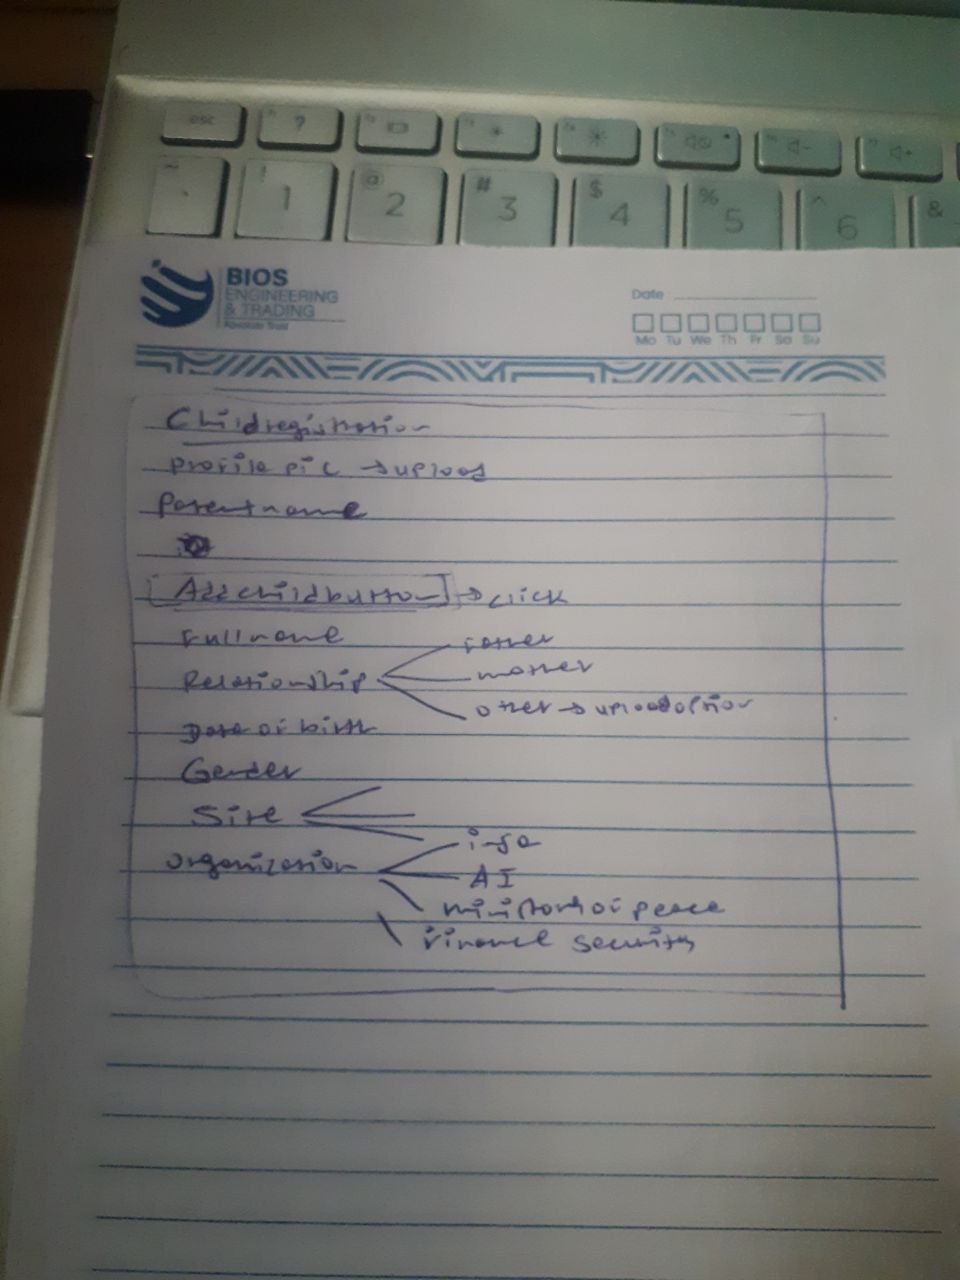 esc ?
~ ! 1 @ 2 # 3 $ 4 % 5 ^ 6 &
BIOS
ENGINEERING
& TRADING
Absolute Trust
Date
Mo Tu We Th Fr Sa Su
Child registration
profile pic → upload
Parent name
Add child button → click
Full name
father
Relationship mother
other → upload option
Date of birth
Gender
Site
organization
AI
of peace
finance security